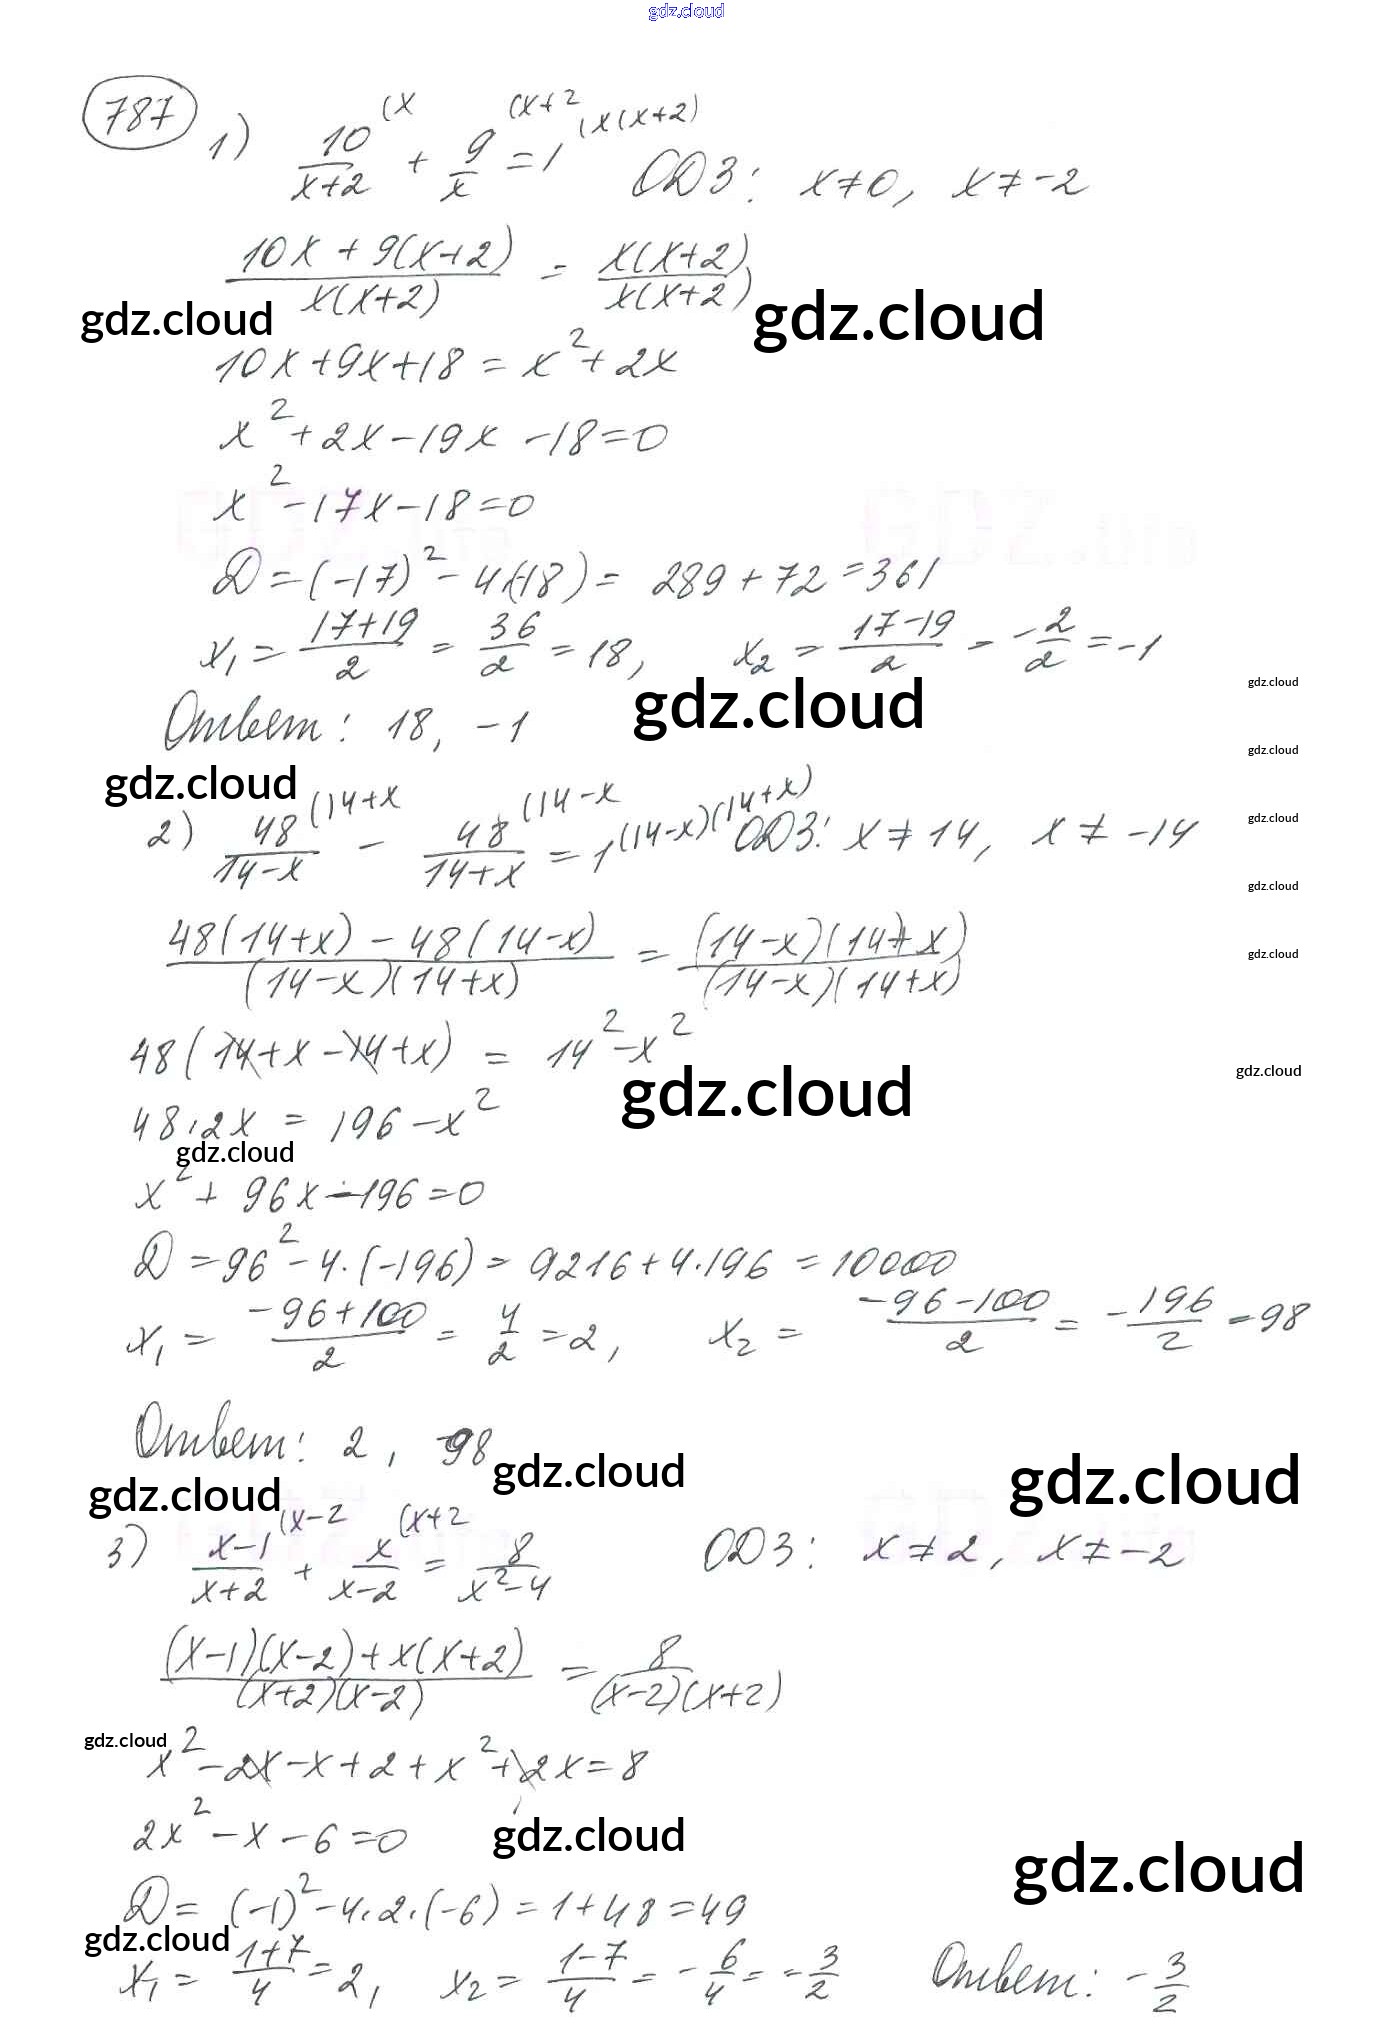 gdz.cloud
787
1) 10/(x+2) (x + 9/x (x+2 = 1 (x(x+2) ОДЗ: x≠0, x≠-2
(10x + 9(x+2))/(x(x+2)) = (x(x+2))/(x(x+2))
gdz.cloud gdz.cloud
10x+9x+18 = x²+2x
x²+2x-19x-18=0
x²-17x-18=0
D=(-17)²-4(-18)= 289+72=361
x₁= (17+19)/2 = 36/2 = 18, x₂ = (17-19)/2 = -2/2 = -1
gdz.cloud gdz.cloud
Ответ: 18, -1
gdz.cloud
gdz.cloud
2) 48/(14-x) (14+x - 48/(14+x) (14-x = 1 (14-x)(14+x) ОДЗ: x≠14, x≠-14
gdz.cloud
gdz.cloud
(48(14+x) - 48(14-x))/((14-x)(14+x)) = ((14-x)(14+x))/((14-x)(14+x))
gdz.cloud
48(14+x-14+x) = 14²-x²
gdz.cloud gdz.cloud
48·2x = 196-x²
gdz.cloud
x²+96x-196=0
D=96²-4·(-196)= 9216+4·196 = 10000
x₁ = (-96+100)/2 = 4/2 = 2, x₂ = (-96-100)/2 = -196/2 = -98
Ответ: 2, -98
gdz.cloud gdz.cloud
gdz.cloud
3) (x-1)/(x+2) (x-2 + x/(x-2) (x+2 = 8/(x²-4) ОДЗ: x≠2, x≠-2
((x-1)(x-2)+x(x+2))/((x+2)(x-2)) = 8/((x-2)(x+2))
gdz.cloud
x²-2x-x+2+x²+2x=8
2x²-x-6=0
gdz.cloud gdz.cloud
D= (-1)²-4·2·(-6)=1+48=49
gdz.cloud
x₁= (1+7)/4 = 2, x₂= (1-7)/4 = -6/4 = -3/2 Ответ: -3/2